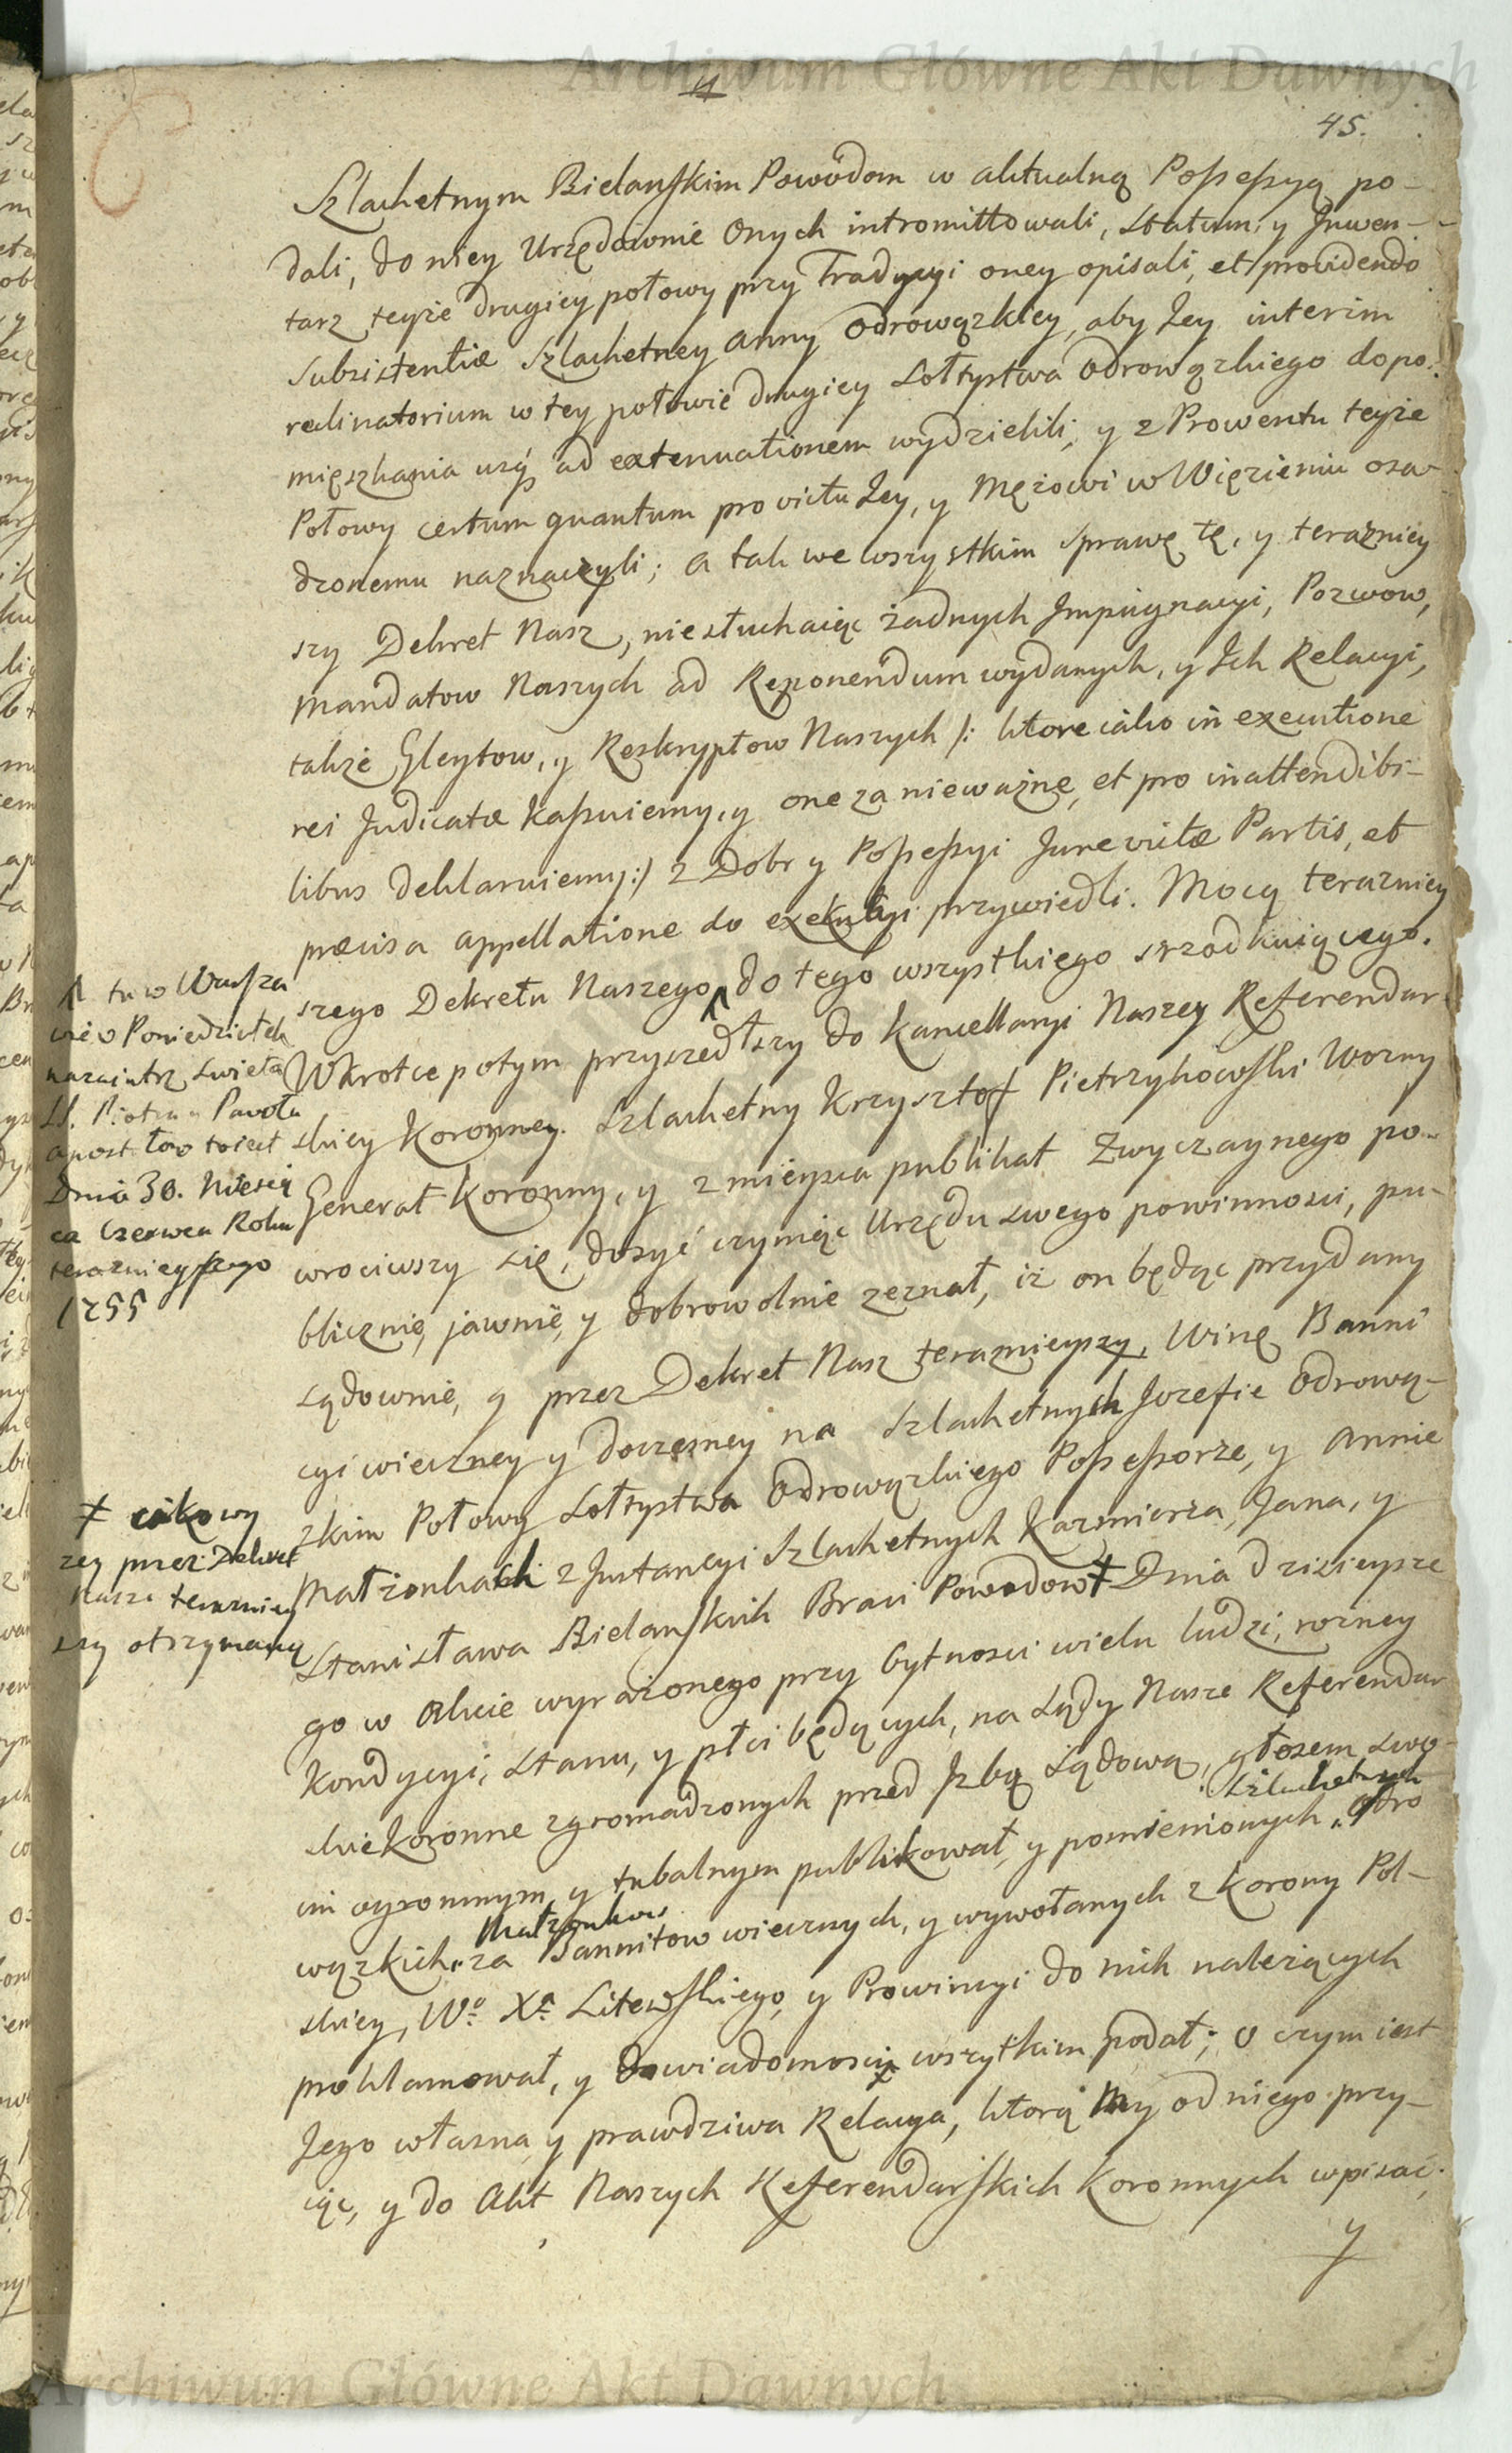 Archiwum Główne Akt Dawnych
45.
Szlachetnym Bielanskim Powodom w aktualną Possessyą po-
dali, do niey Urzędownie Onych intromittowali, Statum y Jnwen-
tarz teyże drugiey połowy przy Tradycyi oney opisali, et providendo
Subsistentiæ Szlachetney Anny Odrowązkiey, aby Jey interim
reclinatorium w tey połowie drugiey Sołtystwa Odrowązkiego do po-
mięszkania ad extenuationem wydzielili, y z Prowentu teyże
Połowy certum quantum pro victu Jey, y Męzowi w Więzieniu osa-
dzonemu naznaczyli; a tak we wszystkim Sprawę tę, y terazniey
szy Dekret Nasz, niesłuchaiąc żadnych Jmpugnacyi, Pozwow,
Mandatow Naszych ad Reponendum wydanych, y Jch Relacyi,
takze Gleytow, y Reskryptow Naszych /: ktore iako in executione
rei Judicatæ kassuiemy, y one za nieważne, et pro inattendibi-
libus deklaruiemy :/ z Dobr y Possessyi Jure victæ Partis, et
præcisa appellatione do exekucyi przywiedli. Mocą terazniey
szego Dekretu Naszego do tego wszystkiego srzodkuiącego.
Wkrotce potym przyszedłszy do Kancellaryi Naszey Referendar
skiey Koronney. Szlachetny Krzysztof Pietrzykowski Wozny
Generał Koronny, y z mieysca publikat Zwyczaynego po-
wrociwszy się, dosyć czyniąc Urzędu swego powinnosci, pu-
blicznie, jawnie, y dobrowolnie zeznał, iż on będąc przydany
sądownie, y przez Dekret Nasz teraznieyszy, Winę Banni
cyi wieczney y doczesney na Szlachetnych Jozefie Odrową-
zkim Połowy Sołtystwa Odrowązkiego Possessorze, y Annie
Małżonkach z Jnstancyi Szlachetnych Kazmierza, Jana, y
Stanisława Bielanskich Braci Powodow ‡ Dnia dzisieysze
go w Akcie wyrażonego przy bytnosci wielu ludzi, rożney
Kondycyi, Stanu, y płci będących, na Sądy Nasze Referendar
skie Koronne zgromadzonych przed Jzbą Sądową, głosem swo-
im ogromnym, y tubalnym publikował, y pomienionych Szlachetnych Odro
wązkich Małżonkow za Bannitow wiecznych, y wywołanych z Korony Pol-
skiey, Wo Xa Litewskiego, y Prowincyi do nich należących
proklamował, y do wiadomosci wszytkim podał; o czym iest
Jego własna y prawdziwa Relacya, ktorą My od niego przy-
iąc, y do Akt Naszych Referendarskich Koronnych wpisać
y
tu w Warsza
wie w Poniedziałek
nazaiutrz Swięta
SS. Piotra y Pawła
Apostołow to iest
Dnia 30. Miesią
ca Czerwca Roku
teraznieyszego
1755
‡
szey przez Dekret
Nasz terazniey
szy otrzymaną
Archiwum Główne Akt Dawnych